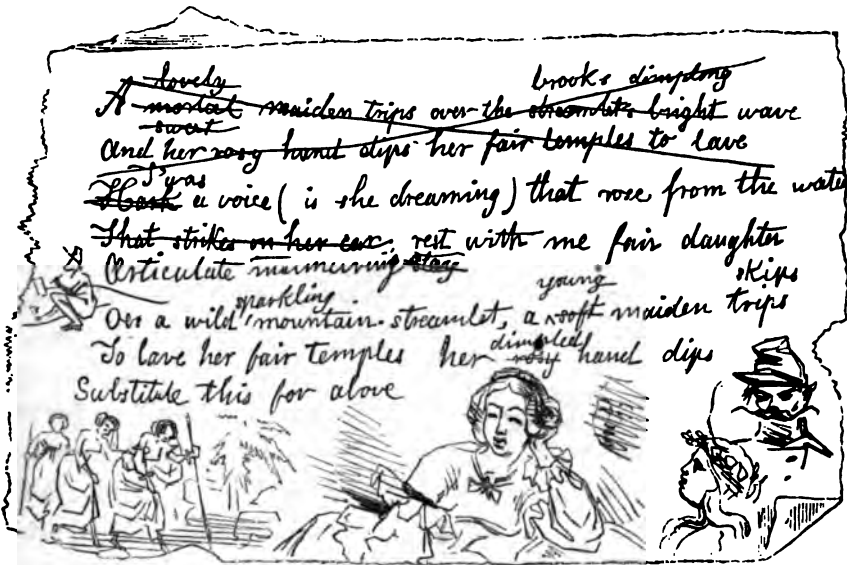 lovely brooks dimpling
A mortal maiden trips over the streamlet's bright wave
sweet
And her rosy hand dips her fair temples to lave
T'was
Hark a voice (is she dreaming) that rose from the wate
That strikes on her ear, rest with me fair daughter
Articulate murmuring stay
young skips
sparkling
Oer a wild mountain-streamlet, a soft maiden trips
dimpled
To lave her fair temples her rosy hand dips
Substitute this for above